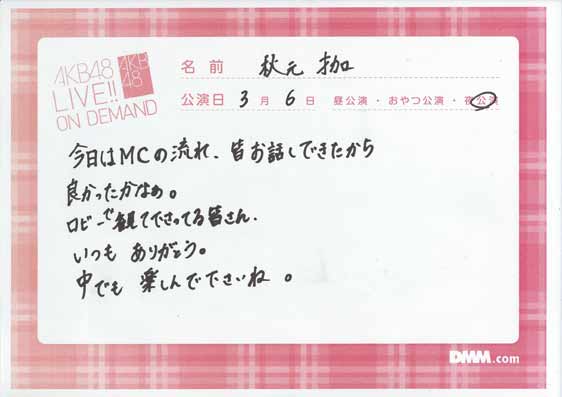 AKB48
LIVE!!
ON DEMAND
AKB
48
名前 秋元 才加
公演日 3月6日 昼公演・おやつ公演・夜公演
今日はMCの流れ、皆お話しできたから
良かったかなぁ。
ロビーで観て下さってる皆さん、
いつも ありがとう。
中でも 楽しんで下さいね。
DMM.com